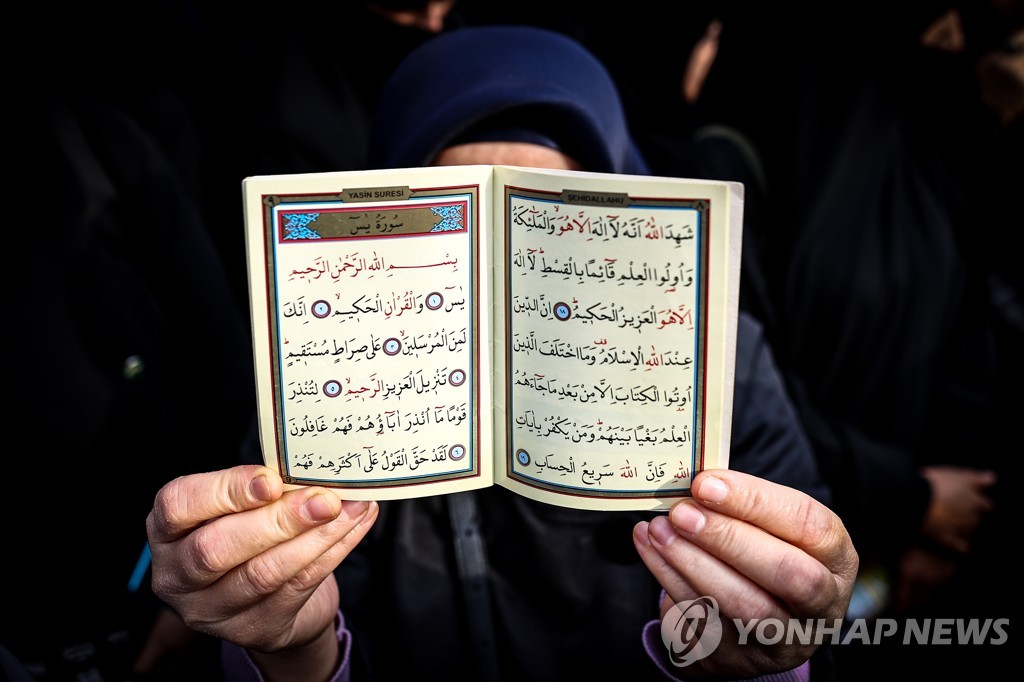 ŞEHİDALLAHU
شَهِدَ اللهُ اَنَّهُ لَٓا اِلٰهَ اِلَّا هُوَۙ وَالْمَلٰٓئِكَةُ
وَاُولُوا الْعِلْمِ قَٓائِمًا بِالْقِسْطِۜ لَٓا اِلٰهَ
اِلَّا هُوَ الْعَزِيزُ الْحَكِيمُۜ ١٨ اِنَّ الدِّينَ
عِنْدَ اللهِ الْاِسْلَامُ وَمَا اخْتَلَفَ الَّذِينَ
اُوتُوا الْكِتَابَ اِلَّا مِنْ بَعْدِ مَا جَٓاءَهُمُ
الْعِلْمُ بَغْيًا بَيْنَهُمْۜ وَمَنْ يَكْفُرْ بِاٰيَاتِ
اللهِ فَاِنَّ اللهَ سَرِيعُ الْحِسَابِ ١٩
YASİN SURESİ
سُورَةُ يٰسٓ
بِسْمِ اللهِ الرَّحْمٰنِ الرَّحِيمِ
يٰسٓ ١ وَالْقُرْاٰنِ الْحَكِيمِۙ ٢ اِنَّكَ
لَمِنَ الْمُرْسَلِينَۙ ٣ عَلٰى صِرَاطٍ مُسْتَقِيمٍۜ
٤ تَنْزِيلَ الْعَزِيزِ الرَّحِيمِۙ ٥ لِتُنْذِرَ
قَوْمًا مَٓا اُنْذِرَ اٰبَٓاؤُهُمْ فَهُمْ غَافِلُونَ
٦ لَقَدْ حَقَّ الْقَوْلُ عَلٰٓى اَكْثَرِهِمْ فَهُمْ
YONHAP NEWS